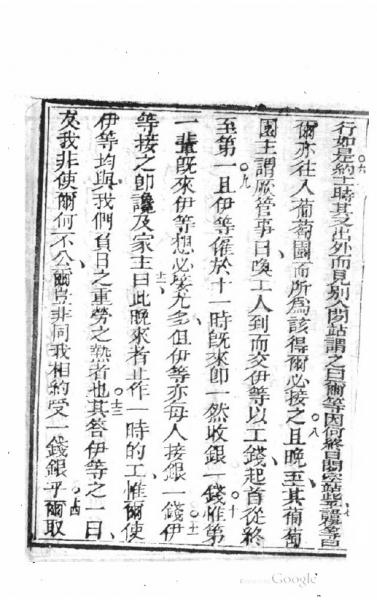 行六如是約十一時其又出外而見別人閑站謂之曰爾等因何終日閑空站此
爾亦往入葡萄園而所為該得爾必接之八且晚至其葡萄
園主謂厥管事曰喚工人到而交伊等以工錢起首從終
至第一九且伊等僱於十一時既來即一然收銀一錢十惟第
一輩既來伊等想必接尤多但伊等亦每人接銀一錢十一伊
等接之即讒及家主曰十二此晚來者止作一時的工惟爾使
伊等均與我們負日之重勞之熱者也十三其答伊等之一曰
友我非使爾何不公爾豈非同我相約受一錢銀乎十四爾取
Google